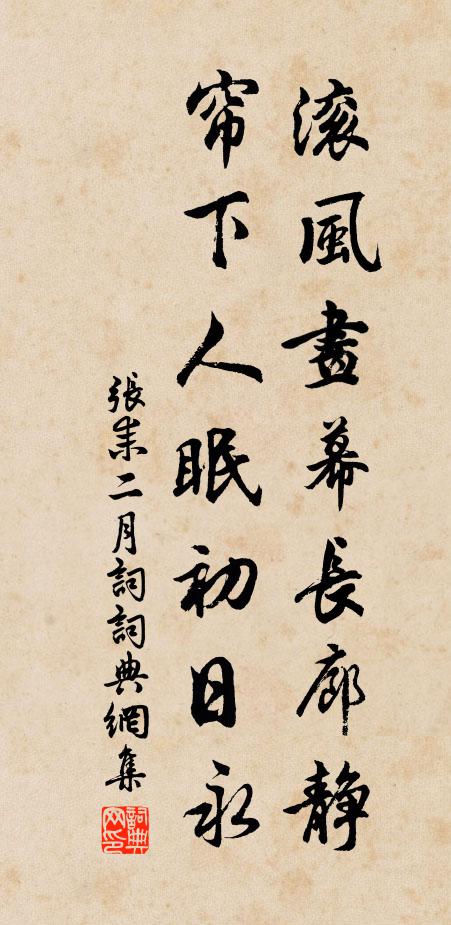 滚風畫幕長廊静
帘下人眠初日永
張耒二月詞詞典網集
詞典網印